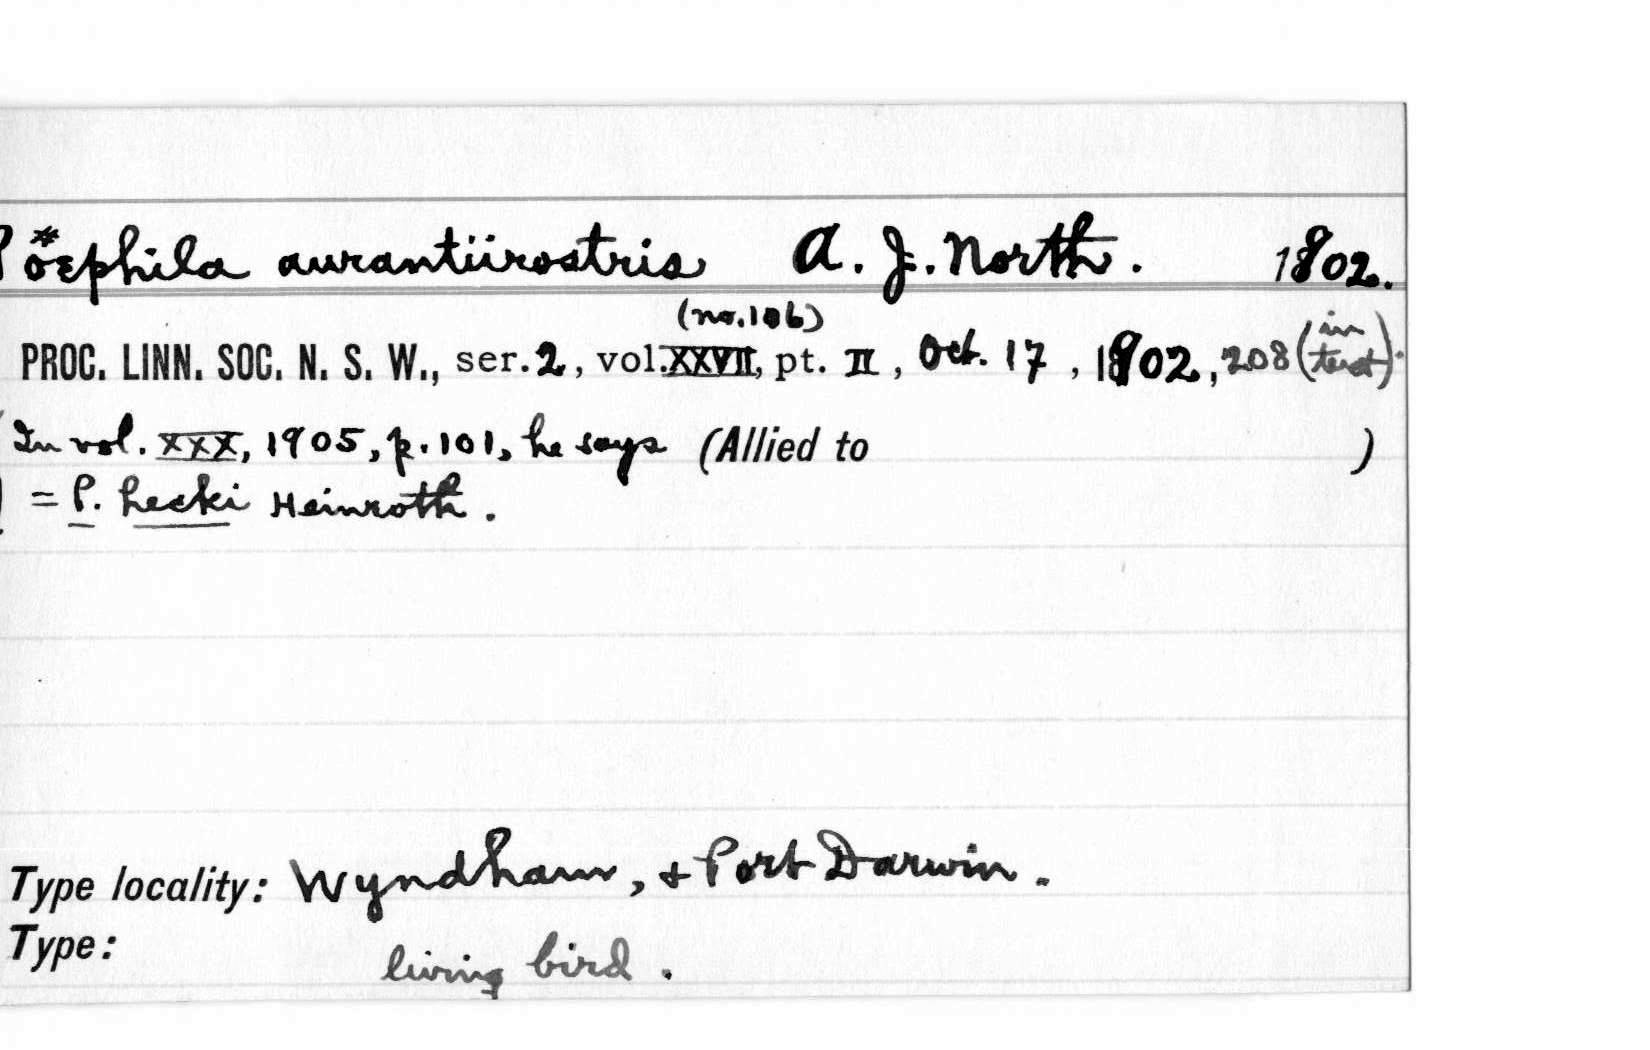 Poephila aurantiirostris A. J. North. 1902.
(no. 106)
PROC. LINN. SOC. N. S. W., ser. 2, vol. XXVII, pt. II, Oct. 17, 1902, 208 (in text).
In vol. XXX, 1905, p. 101, he says (Allied to )
= P. hecki Heinroth.
Type locality: Wyndham, + Port Darwin.
Type: living bird.